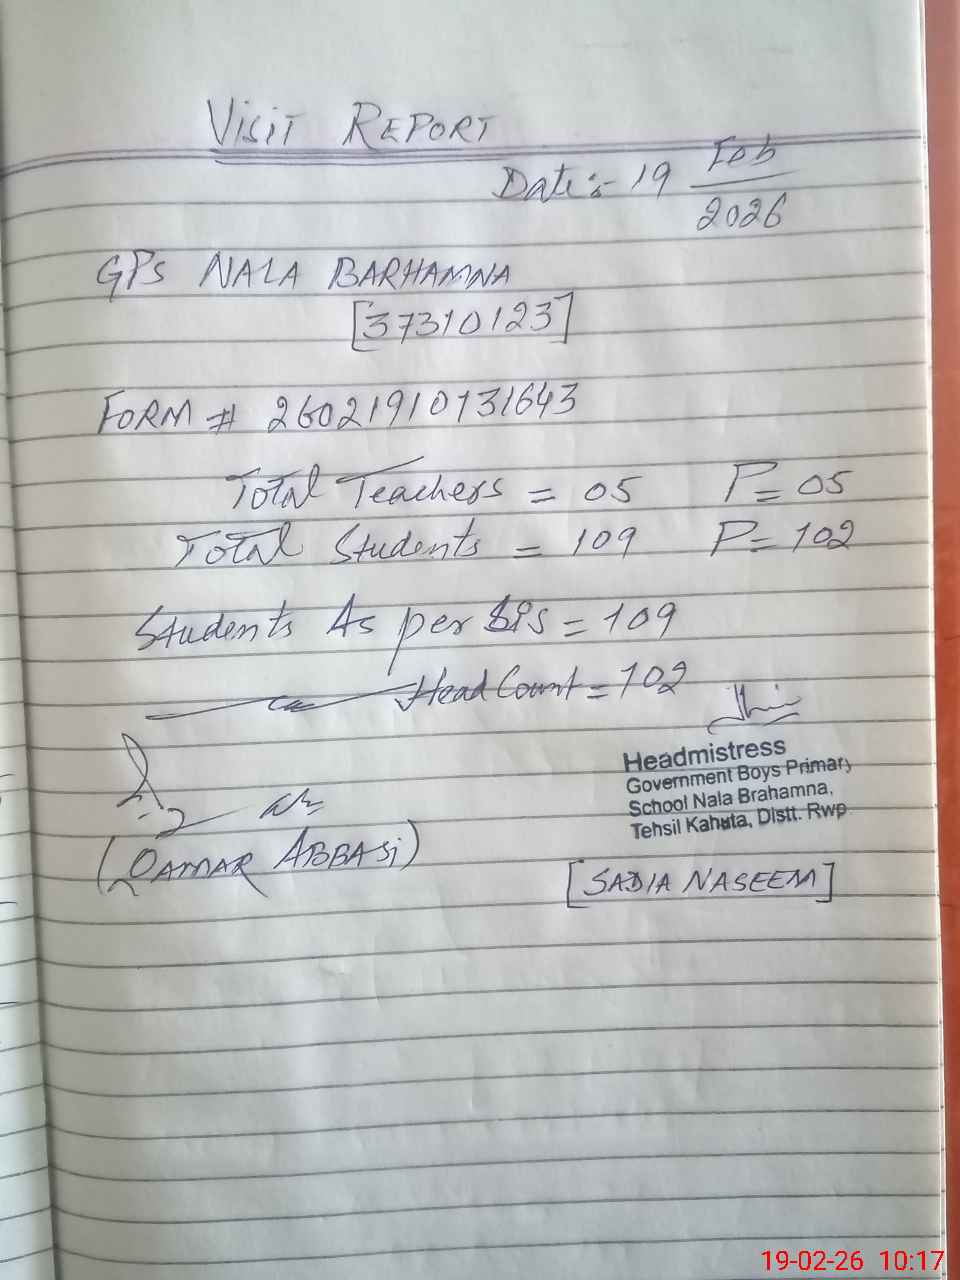 VISIT REPORT
Date:- 19 Feb
2026
GPS NALA BARHAMNA
[37310123]
FORM # 26021910131643
Total Teachers = 05 P= 05
Total Students = 109 P= 102
Students As per SIS = 109
Head Count = 102
Headmistress
Government Boys Primary
School Nala Brahamna,
Tehsil Kahuta, Distt. Rwp
(QAMAR ABBASi)
[SADIA NASEEM]
19-02-26 10:17